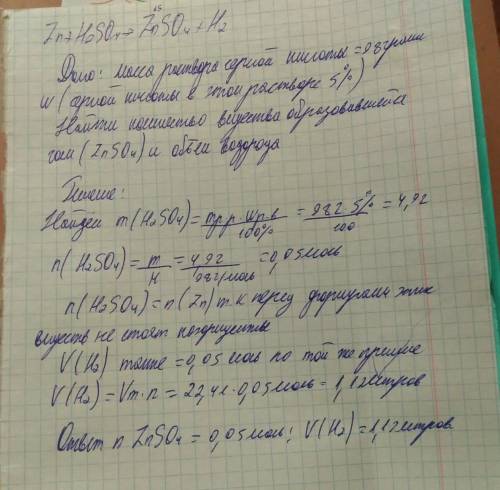 Zn+H2SO4→ZnSO4+H2
Дано: масса раствора серной кислоты = 98 грамм
w (серной кислоты в этом растворе 5%)
Найти количество вещества образовавшейся
соли (ZnSO4) и объём водорода
Решение:
Найдем m(H2SO4) = mр.р · wр.в / 100% = 98г · 5% / 100 = 4,9г
n(H2SO4) = m/M = 4,9г / 98г/моль = 0,05моль
n(H2SO4) = n(Zn) т.к перед формулами этих
веществ не стоят коэффиценты
V(H2) также = 0,05 моль по той же причине
V(H2) = Vm·n = 22,4л · 0,05моль = 1,12литров
Ответ n ZnSO4 = 0,05моль; V(H2) = 1,12литров